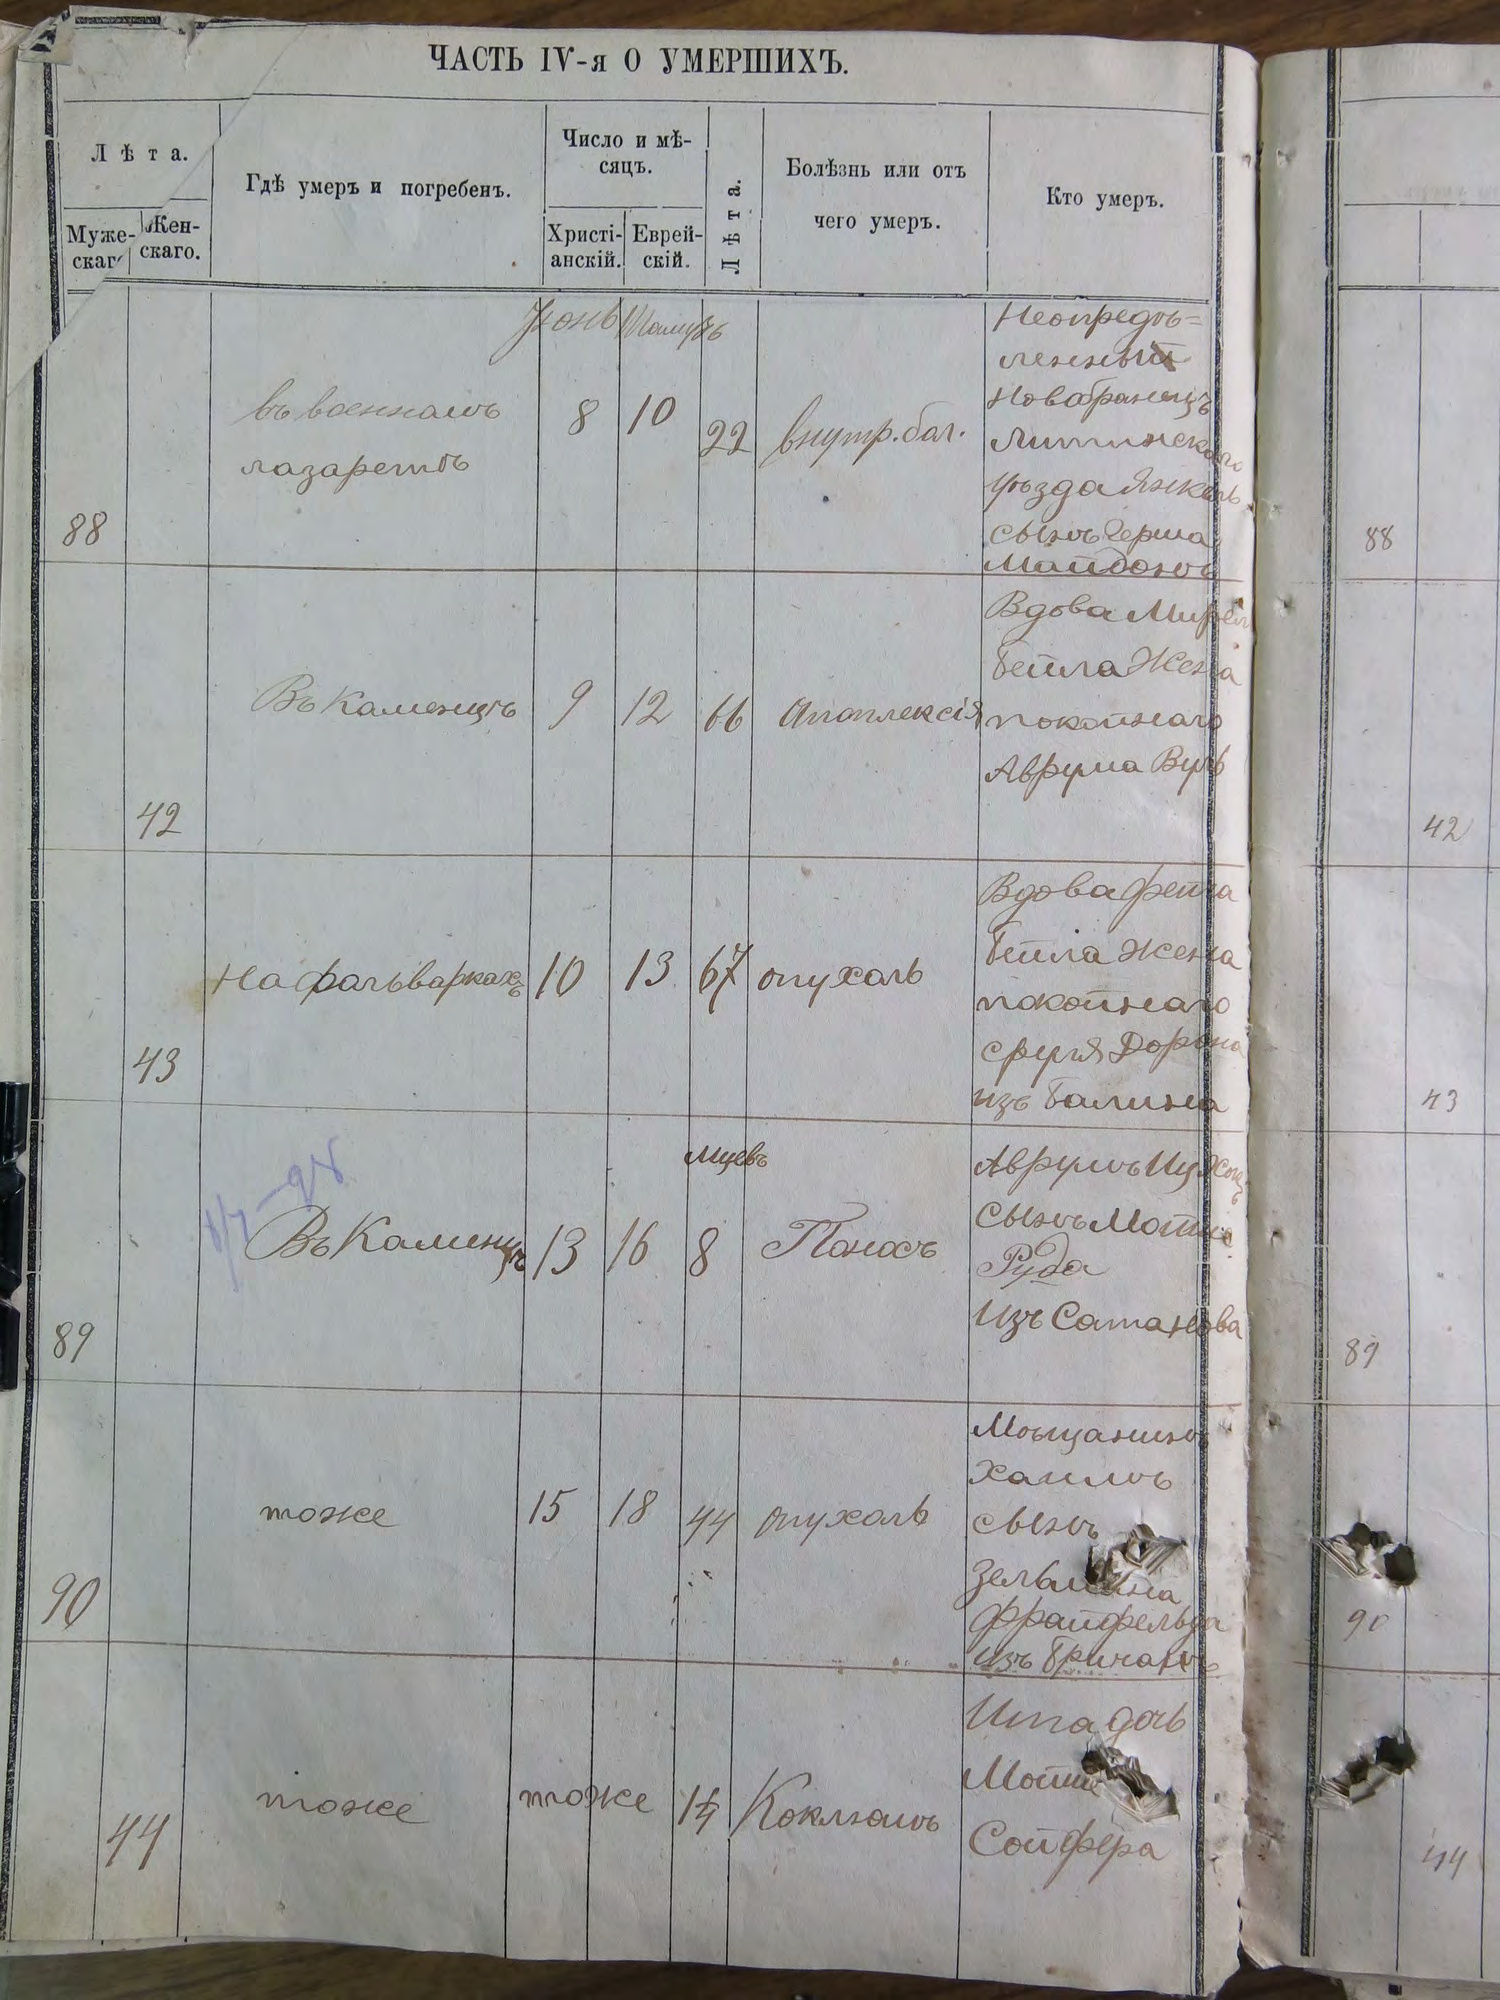 ЧАСТЬ IV-я О УМЕРШИХЪ.
Лѣта.
Муже-
скаг
Жен-
скаго.
Гдѣ умеръ и погребенъ.
Число и мѣ-
сяцъ.
Христі-
анскій.
Еврей-
скій.
Лѣта.
Болѣзнь или отъ
чего умеръ.
Кто умеръ.
Юнь
88
въ военномъ
лазаретѣ
8
10
22
внутр. бол.
Неопредѣ=
ленный
Новобранецъ
Литинскаго
уѣзда Янкель
сынъ Герша
Майданъ
42
Въ Каменцѣ
9
12
66
апоплексія
Вдова
Бейла Жена
покойнаго
Аврума
43
На фольваркахъ
10
13
67
опухоль
Вдова Фейга
Бейла Жена
покойнаго
Сруля
изъ Балина
89
Въ Каменцѣ
13
16
мцевъ
8
Поносъ
Аврумъ
сынъ
Руда
Изъ Сатанова
90
тоже
15
18
44
опухоль
Мѣщанинъ
Хаимъ
сынъ
из Бричанъ
44
тоже
тоже
Коклюшъ
дочь
Сойфера
88
42
43
89
90
44